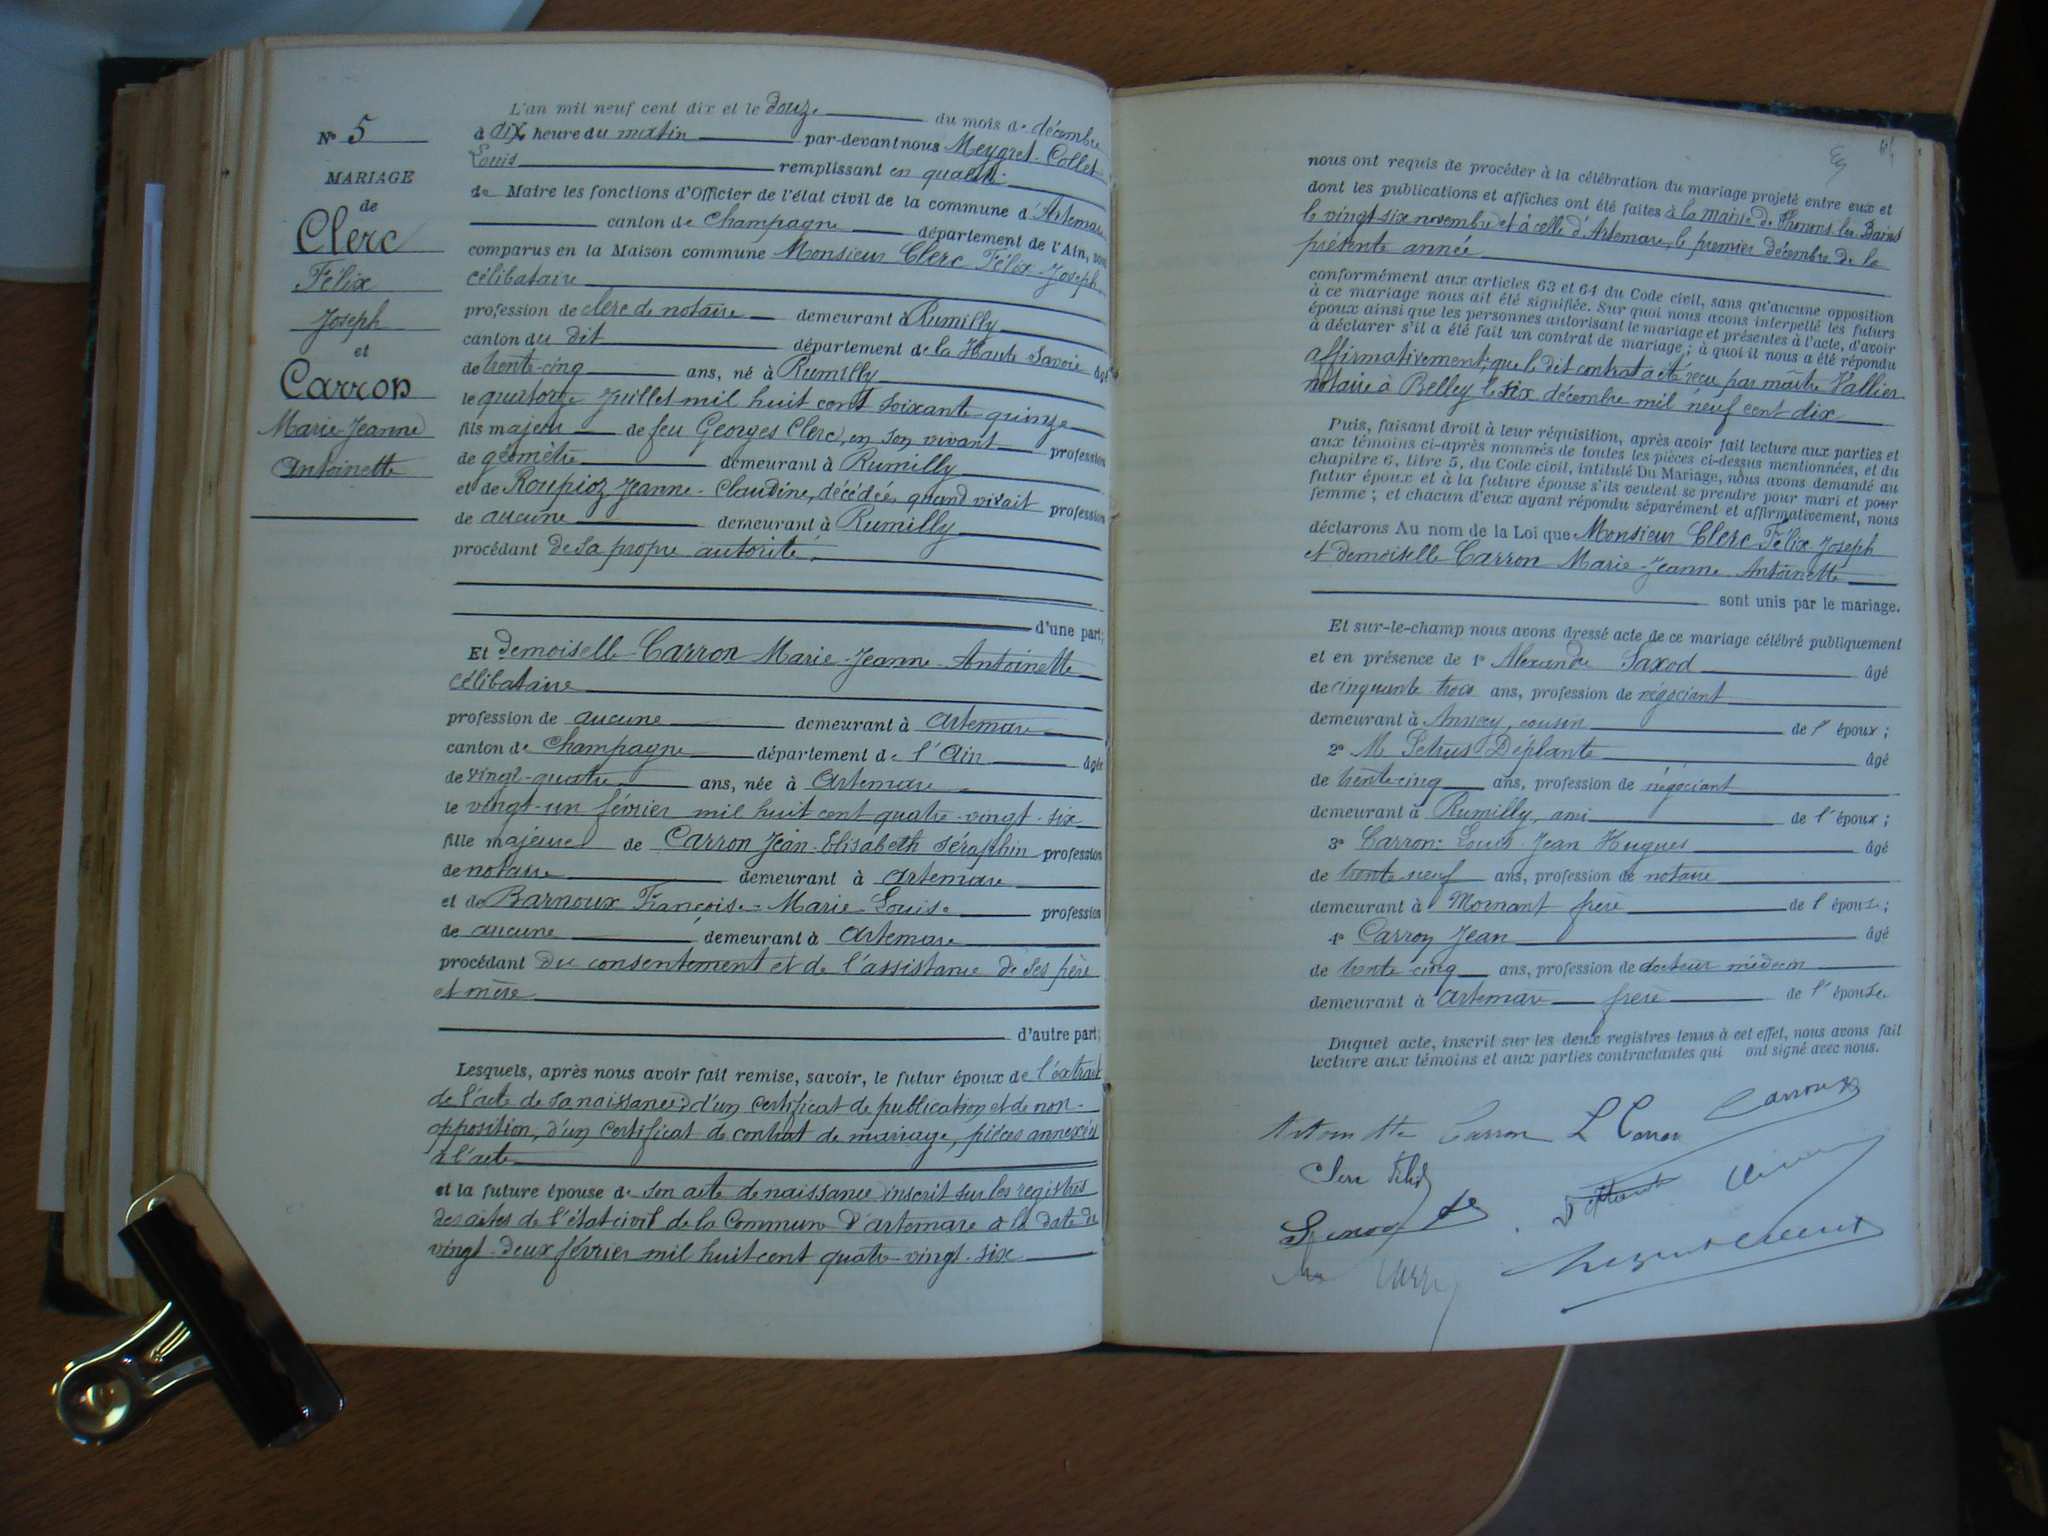 N° 5
MARIAGE
de
Clerc
Félix
Joseph
et
Carron
Marie-Jeanne
Antoinette
L'an mil neuf cent dix et le douze du mois de décembre
à dix heure du matin par-devant nous Meygret-Collet
Louis remplissant en qualité
de Maire les fonctions d'Officier de l'état civil de la commune d'Artemare
canton de Champagne département de l'Ain, sont
comparus en la Maison commune Monsieur Clerc Félix Joseph
célibataire
profession de clerc de notaire demeurant à Rumilly
canton du dit département de la Haute Savoie âgé
de trente-cinq ans, né à Rumilly
le quatorze juillet mil huit cent soixante-quinze
fils majeur de feu Georges Clerc, en son vivant profession
de géomètre demeurant à Rumilly
et de Roupioz Jeanne-Claudine, décédée, quand vivait profession
de aucune demeurant à Rumilly
procédant de sa propre autorité
d'une part;
Et demoiselle Carron Marie-Jeanne-Antoinette
célibataire
profession de aucune demeurant à Artemare
canton de Champagne département de l'Ain âgée
de vingt-quatre ans, née à Artemare
le vingt-un février mil huit cent quatre-vingt-six
fille majeure de Carron Jean-Elisabeth Séraphin profession
de notaire demeurant à Artemare
et de Barnoux Françoise-Marie-Louise profession
de aucune demeurant à Artemare
procédant du consentement et de l'assistance de ses père
et mère
d'autre part;
Lesquels, après nous avoir fait remise, savoir, le futur époux de l'extrait
de l'acte de sa naissance, d'un certificat de publication et de non-
opposition, d'un certificat de contrat de mariage, pièces annexées
à l'acte
et la future épouse de son acte de naissance inscrit sur les registres
des actes de l'état civil de la Commune d'Artemare à la date du
vingt-deux février mil huit cent quatre-vingt-six
nous ont requis de procéder à la célébration du mariage projeté entre eux et
dont les publications et affiches ont été faites à la mairie de Thonons les Bains
le vingt-six novembre et à celle d'Artemare, le premier décembre de la
présente année
conformément aux articles 63 et 64 du Code civil, sans qu'aucune opposition
à ce mariage nous ait été signifiée. Sur quoi nous avons interpellé les futurs
époux ainsi que les personnes autorisant le mariage et présentes à l'acte, d'avoir
à déclarer s'il a été fait un contrat de mariage; à quoi il nous a été répondu
affirmativement, que le dit contrat a été reçu par maître Vallier
notaire à Belley le six décembre mil neuf cent dix
Puis, faisant droit à leur réquisition, après avoir fait lecture aux parties et
aux témoins ci-après nommés de toutes les pièces ci-dessus mentionnées, et du
chapitre 6, titre 5, du Code civil, intitulé Du Mariage, nous avons demandé au
futur époux et à la future épouse s'ils veulent se prendre pour mari et pour
femme; et chacun d'eux ayant répondu séparément et affirmativement, nous
déclarons Au nom de la Loi que Monsieur Clerc Félix Joseph
et demoiselle Carron Marie-Jeanne-Antoinette
sont unis par le mariage.
Et sur-le-champ nous avons dressé acte de ce mariage célébré publiquement
et en présence de 1° Alexandre Saxod âgé
de cinquante trois ans, profession de négociant
demeurant à Annecy, cousin de l'époux;
2° M. Petrus Déplante âgé
de trente-cinq ans, profession de négociant
demeurant à Rumilly, ami de l'époux;
3° Carron Louis-Jean Hugues âgé
de trente-neuf ans, profession de notaire
demeurant à Mornant frère de l'épouse;
4° Carron Jean âgé
de trente-cinq ans, profession de docteur médecin
demeurant à Artemare frère de l'épouse
Duquel acte, inscrit sur les deux registres tenus à cet effet, nous avons fait
lecture aux témoins et aux parties contractantes qui ont signé avec nous.
Antoinette Carron L Carron
Clerc Félix